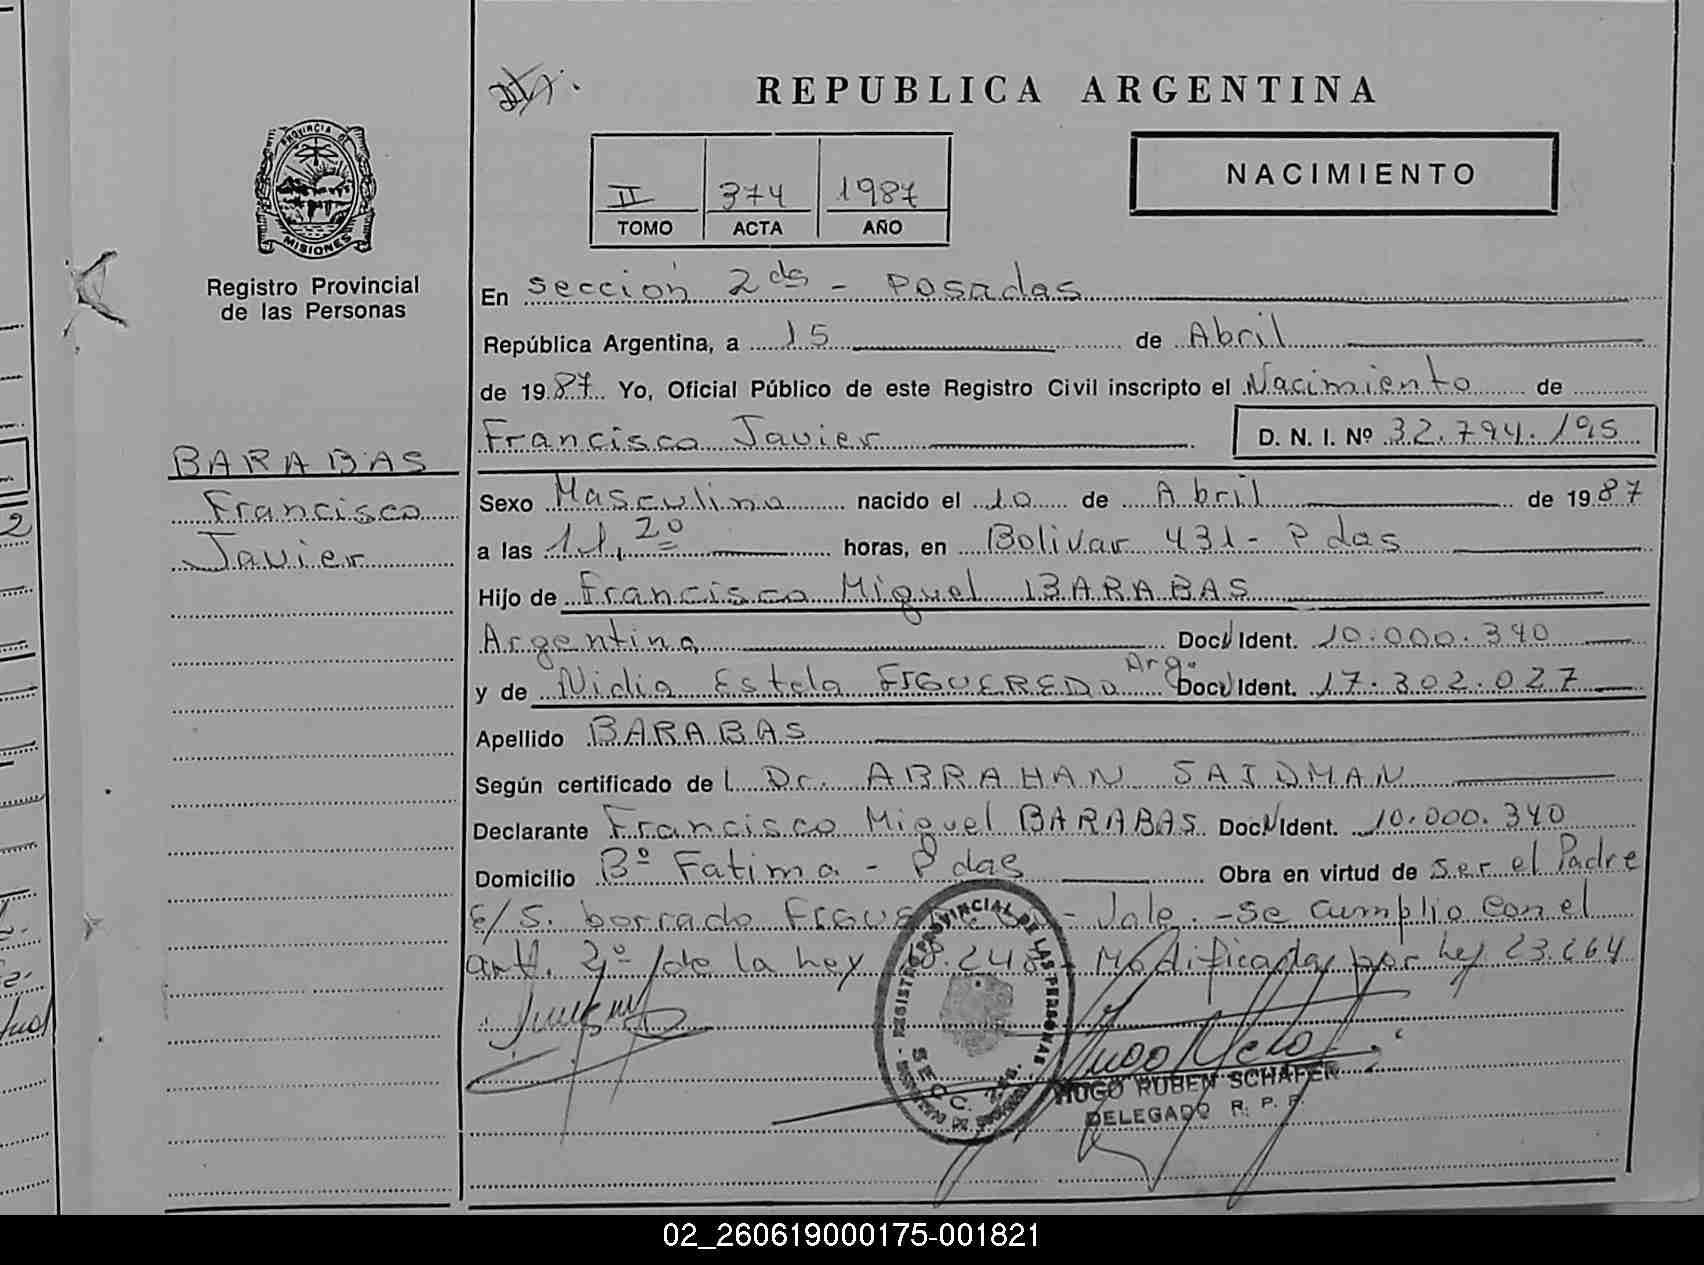 REPUBLICA ARGENTINA
PROVINCIA DE
MISIONES
Registro Provincial
de las Personas
II 374 1987
TOMO ACTA AÑO
NACIMIENTO
En Sección 2da - Posadas
República Argentina, a 15 de Abril
de 1987. Yo, Oficial Público de este Registro Civil inscripto el Nacimiento de
Francisco Javier D. N. I. Nº 32.794.195
BARABAS
Francisco
Javier
Sexo Masculino nacido el 10 de Abril de 1987
a las 11,20 horas, en Bolivar 431 - Pdas
Hijo de Francisco Miguel BARABAS
Argentina Doc. Ident. 10.000.340
y de Nidia Estela FIGUEREDO Arg. Doc. Ident. 17.302.027
Apellido BARABAS
Según certificado de l Dr. ABRAHAN SAIDMAN
Declarante Francisco Miguel BARABAS Doc. Ident. 10.000.340
Domicilio Bº Fatima - Pdas Obra en virtud de ser el Padre
E/S. borrado - Vale. - Se cumplio con el
art. 2º de la Ley 18.248 Modificada por Ley 23.264
REGISTRO PROVINCIAL DE LAS PERSONAS
SECC. 2da.
HUGO RUBEN SCHAFER
DELEGADO R. P. P.
02_260619000175-001821